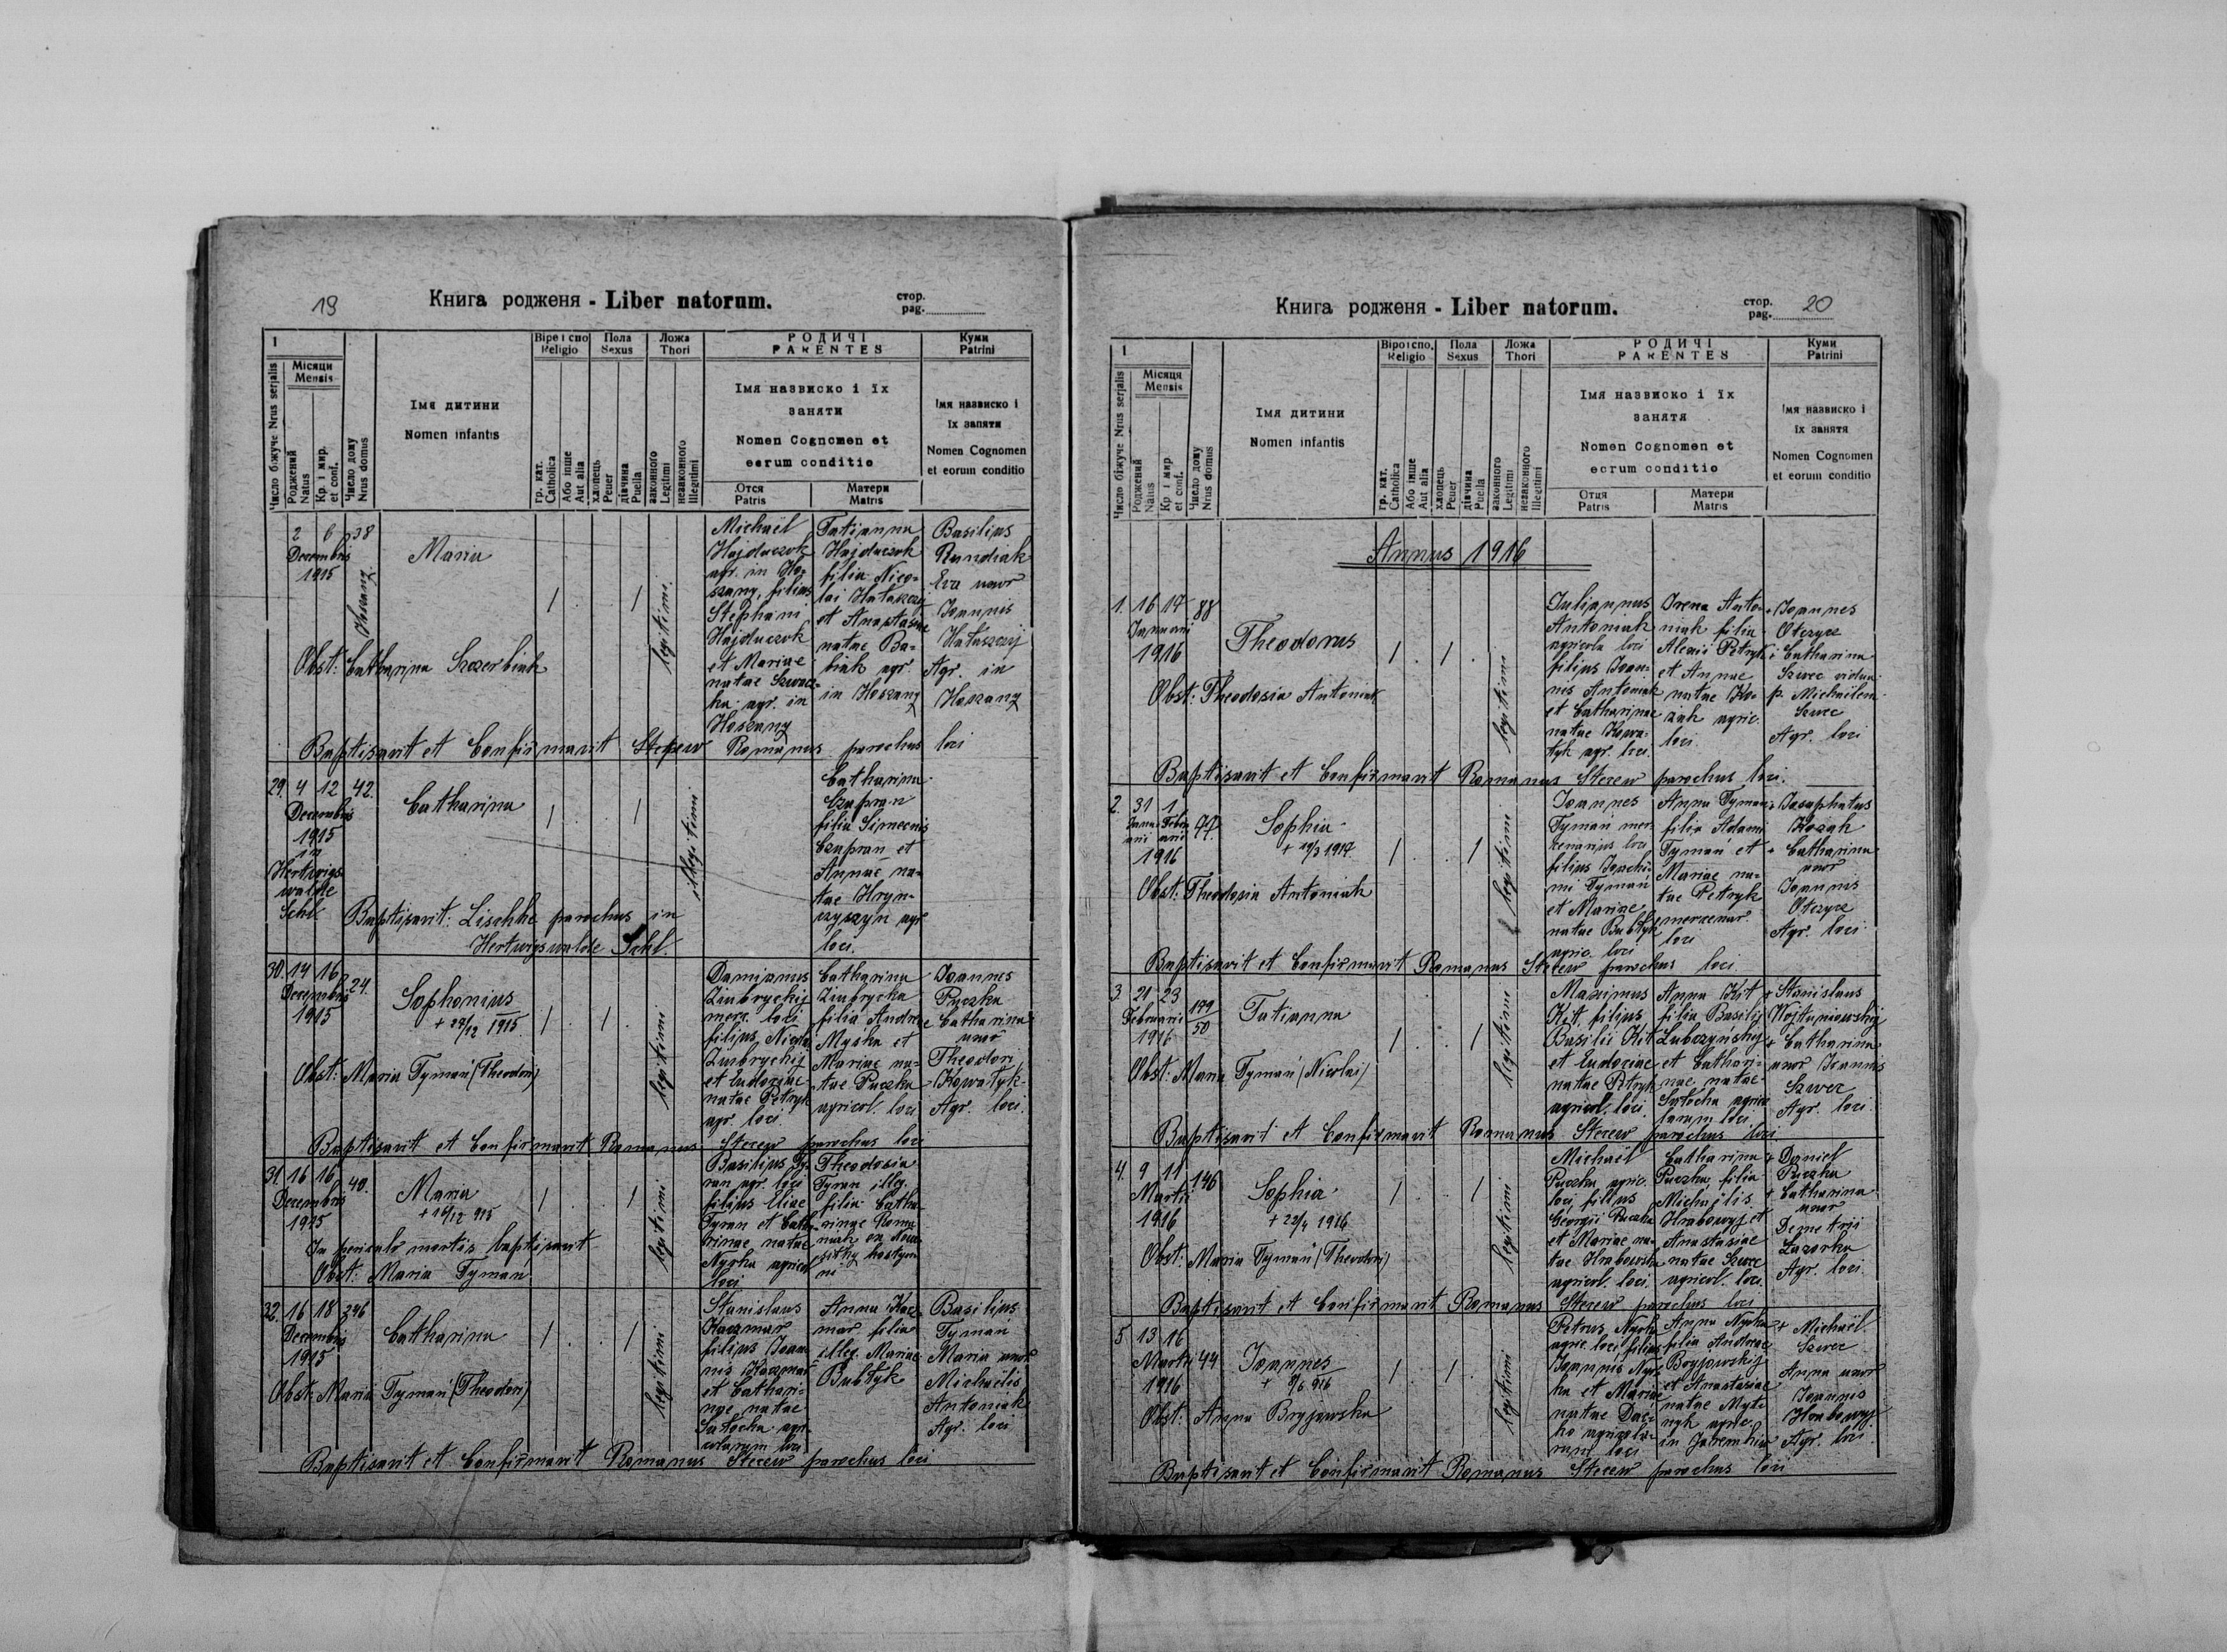 19
Книга родженя - Liber natorum.
стор.
pag.
1
Місяци
Mensis
Число біжуче Nrus serjalis
Роджений
Natus
Кр. і мир.
et conf.
Число дому
Nrus domus
Імя дитини
Nomen infantis
Віре і спо
Religio
гр. кат.
Catholica
Або інше
Aut alia
Пола
Sexus
хлопець
Peuer
дівчина
Puella
Ложа
Thori
законного
Legitimi
незаконного
illegitimi
РОДИЧІ
PARENTES
Імя назвиско і їх
заняти
Nomen Cognomen et
eorum conditio
Отся
Patris
Матери
Matris
Куми
Patrini
Імя назвиско і
їх заняти
Nomen Cognomen
et eorum conditio
2 6 38
Decembris
1915
Maria
1 1
legitimi
Michaël
Hajduczok
agr. in Ho-
szany, filius
Stephani
Hajduczok
et Mariae
natae
agr. in
Hoszany
Tatianna
Hajduczok
filia Nico-
lai
et Anastasiae
natae Ba-
biak agr.
in Hoszany
Basilius
Eva uxor
Joannis
Agr. in
Hoszany
Obst: Catharina Szczerbiak
Baptisavit et Confirmavit Stecew Romanus parochus loci
29. 4 12 42.
Decembris
1915
in
Hertwigs
walde
Schl.
Catharina
1 1
illegitimi
Catharina
Czapran
filia Simeonis
Czapran et
Annae na-
tae Hryn-
czyszyn agr
loci.
Baptisavit: Lischke parochus in
Hertwigswalde Schl.
30. 14 16 24.
Decembris
1915
Sophonius
+ 29/12 1915.
1 1
legitimi
Damianus
Ziubryckij
merc. loci
filius Nicola
Zubryckij
et Eudociae
natae Petryk
agr. loci
Catharina
Ziubrycka
filia Andreae
Myska et
Mariae na-
tae Puczka
agricol. loci
Joannes
Puczka
Catharina
uxor
Theodori
Kowatyk
Agr. loci.
Obst: Maria Tymań (Theodori)
Baptisavit et Confirmavit Romanus Stecew parochus loci
31. 16 16 40.
Decembris
1915
Maria
+ 16/12 915
1 1
legitimi
Basilius Ty-
ran agr. loci
filius Eliae
Tyran et Catha-
rinae natae
Nyrka agricol
loci
Theodosia
Tyran illeg.
filia Catha-
rinae Roma-
niak
In periculo mortis baptisavit
Obst: Maria Tyman
32. 16 18 346
Decembris
1915
Catharina
1 1
legitimi
Stanislaus
Kaczmar
filius Joan-
nis Kaczmar
et Cathari-
nae natae
Satocha agri-
colarum loci
Anna Kacz-
mar filia
illeg. Mariae
Bubtyk
Basilius
Tymań
Maria uxor
Michaelis
Antoniak
Agr. loci
Obst: Maria Tymań (Theodori)
Baptisavit et Confirmavit Romanus Stecew parochus loci
Книга родженя - Liber natorum.
стор.
pag. 20
1
Місяця
Mensis
Число біжуче Nrus serjalis
Роджений
Natus
Кр і мир
et conf.
Число дому
Nrus domus
Імя дитини
Nomen infantis
Віро і спо.
Religio
гр. кат.
Catholica
Або інше
Aut alia
Пола
Sexus
хлопець
Peuer
дівчина
Puella
Ложа
Thori
законного
Legitimi
незаконного
illegitimi
РОДИЧІ
PARENTES
Імя назвиско і їх
занятя
Nomen Cognomen et
eorum conditio
Отця
Patris
Матери
Matris
Куми
Patrini
Імя назвиско і
їх занятя
Nomen Cognomen
et eorum conditio
Annus 1916
1. 16 17 88
Januarii
1916
Theodorus
1 1
legitimi
Juliannus
Antoniak
agricola loci
filius Joan-
nis Antoniak
et Catharinae
natae Kowa-
tyk agr. loci.
Irena Anto-
niak filia
Alexii Petryk
et Annae
natae Ko-
ziak agric.
loci.
Joannes
Otczyce
Catharina
Szwec vidua
p. Michaëlem
Szwec
Agr. loci
Obst: Theodosia Antoniak
Baptisavit et Confirmavit Romanus Stecew parochus loci.
2. 31 1 77
1916
Sophia
+ 19/3 1917
1 1
legitimi
Joannes
Tymań mer-
cenarius loci
filius Joachi-
mi Tymań
et Mariae
natae Bubtyk
agric. loci
Anna Tymań
filia Adami
Tymań et
Mariae na-
tae Petryk
mercenar.
loci
Josaphatus
Kozak
+ Catharina
uxor
Joannis
Otczyce
Agr. loci
Obst: Theodosia Antoniak
Baptisavit et Confirmavit Romanus Stecew parochus loci.
3. 21 23 179/50
Februarii
1916
Tatianna
1 1
legitimi
Maximus
Kit, filius
Basilii Kit
et Eudociae
natae Petryk
agricol. loci
Anna Kit
filia Basilij
Lubczyńskij
et Cathari-
nae natae
Satocha agrico
larum loci
+ Stanislaus
Wojtuniowskij
+ Catharina
uxor Joannis
Szwec
Agr. loci
Obst: Maria Tymań (Nicolai)
Baptisavit et Confirmavit Romanus Stecew parochus loci
4. 9 11 146
Martii
1916
Sophia
+ 22/4 1916
1 1
legitimi
Michaël
Puczka agric.
loci, filius
Georgii Puczka
et Mariae na-
tae Hrabowska
agricol. loci.
Catharina
Puczka, filia
Michaelis
Hrabowyj et
Anastasiae
natae Szwec
agricol. loci.
+ Daniel
Puczka
+ Catharina
uxor
Demetrii
Łazorka
Agr. loci
Obst: Maria Tymań (Theodori)
Baptisavit et Confirmavit Romanus Stecew parochus loci
5 13 16 44
Martii
1916
Joannes
1 1
legitimi
Petrus Nyrka
agric. loci filius
Joannis Nyr-
ka et Mariae
natae Dac-
ko agricola-
rum loci
Anna Nyrka
filia Andreae
Bryjowskij
et Anastasiae
natae
agric.
in
+ Michaël
Szwec
Anna uxor
Joannis
Hrabowyj
Agr. loci
Obst: Anna Bryjowska
Baptisavit et Confirmavit Romanus Stecew parochus loci